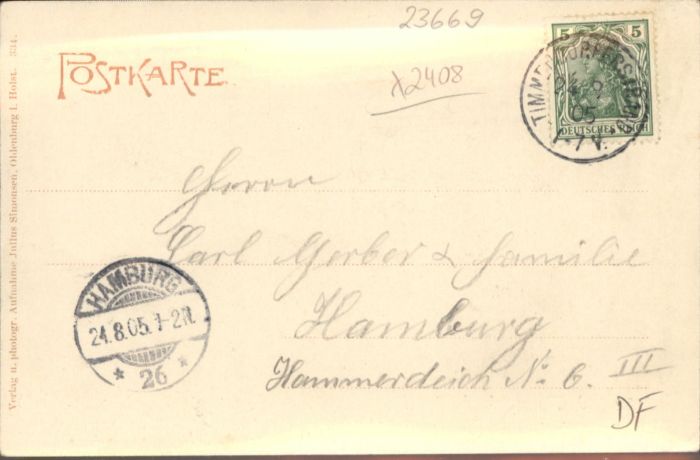 23669
λ2408
POSTKARTE
5 5
DEUTSCHES REICH
TIMMENDORFERSTRAND
24 8
05
7 V.
Herrn
Carl Gerber & Familie
Hamburg
Hammerdeich No. 6. III
DF
HAMBURG
24.8.05. 1-2 N.
* 26 *
Verlag u. photogr. Aufnahme Julius Simonsen, Oldenburg i. Holst. 334.